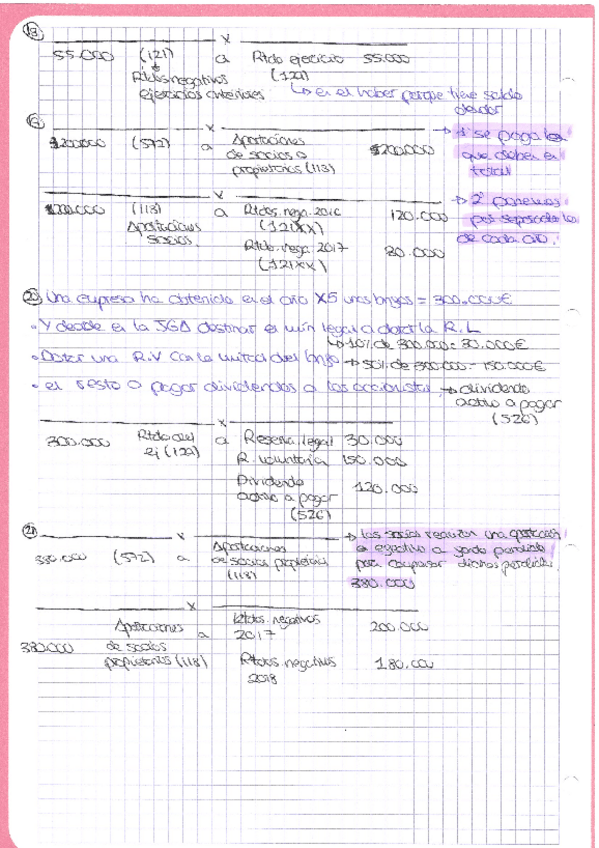 19
x
55.000 (121) a Rtdo ejercicio 55.000
Rtdos negativos (129)
ejercicios anteriores ↳ en el haber porque tiene saldo
deudor
x
$200.000 (572) a Aportaciones $200.000 → 1º se paga lo
de socios o que deben en
propietarios (113) total
x
200.000 (118) a Rtdos. nega. 2016 120.000 → 2º ponemos
Aportaciones (121XX) por separado los
socios. Rtdo. nega. 2017 80.000 de cada año.
(121XX)
20 Una empresa ha obtenido en el año X5 unos bºs = 300.000€
• Y decide en la JGA destinar el mín legal a dotar la R.L
↳ 10% de 300.000 = 30.000€
• Dotar una R.V con la mitad del → 50% de 300.000 = 150.000€
• el resto a pagar dividendos a los accionistas → dividendo
activo a pagar
(526)
x
300.000 Rtdo del a Reserva legal 30.000
ej (129) R. voluntaria 150.000
Dividendo 120.000
activo a pagar
(526)
21
x
380.000 (572) a Aportaciones → los socios realizan una aportación
de socios propietarios
(118) para compensar dichas pérdidas
380.000
x
Aportaciones a Rtdos. negativos 200.000
380.000 de socios 2017
propietarios (118) Rtdos. negativos 180.000
2018